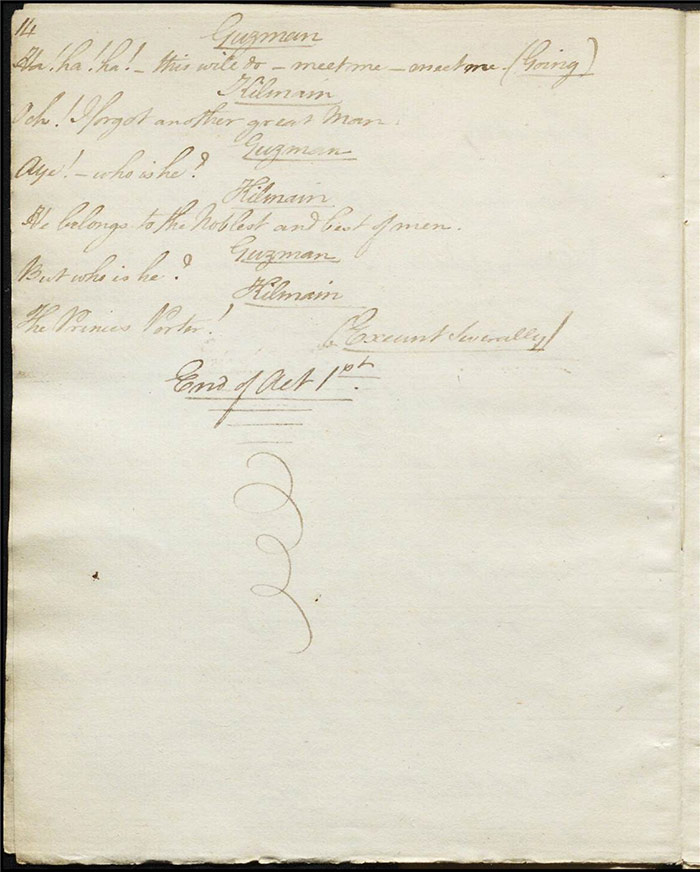 14
Guzman
Ha! ha! ha! – this will do – meet me – meet me (Going)
Kilmain
Och! I forgot another great Man.
Guzman
Aye! – who is he?
Kilmain
He belongs to the Noblest and best of men.
Guzman
But who is he?
Kilmain
The Princes Porter!
(Exeunt Severally)
End of Act 1st.